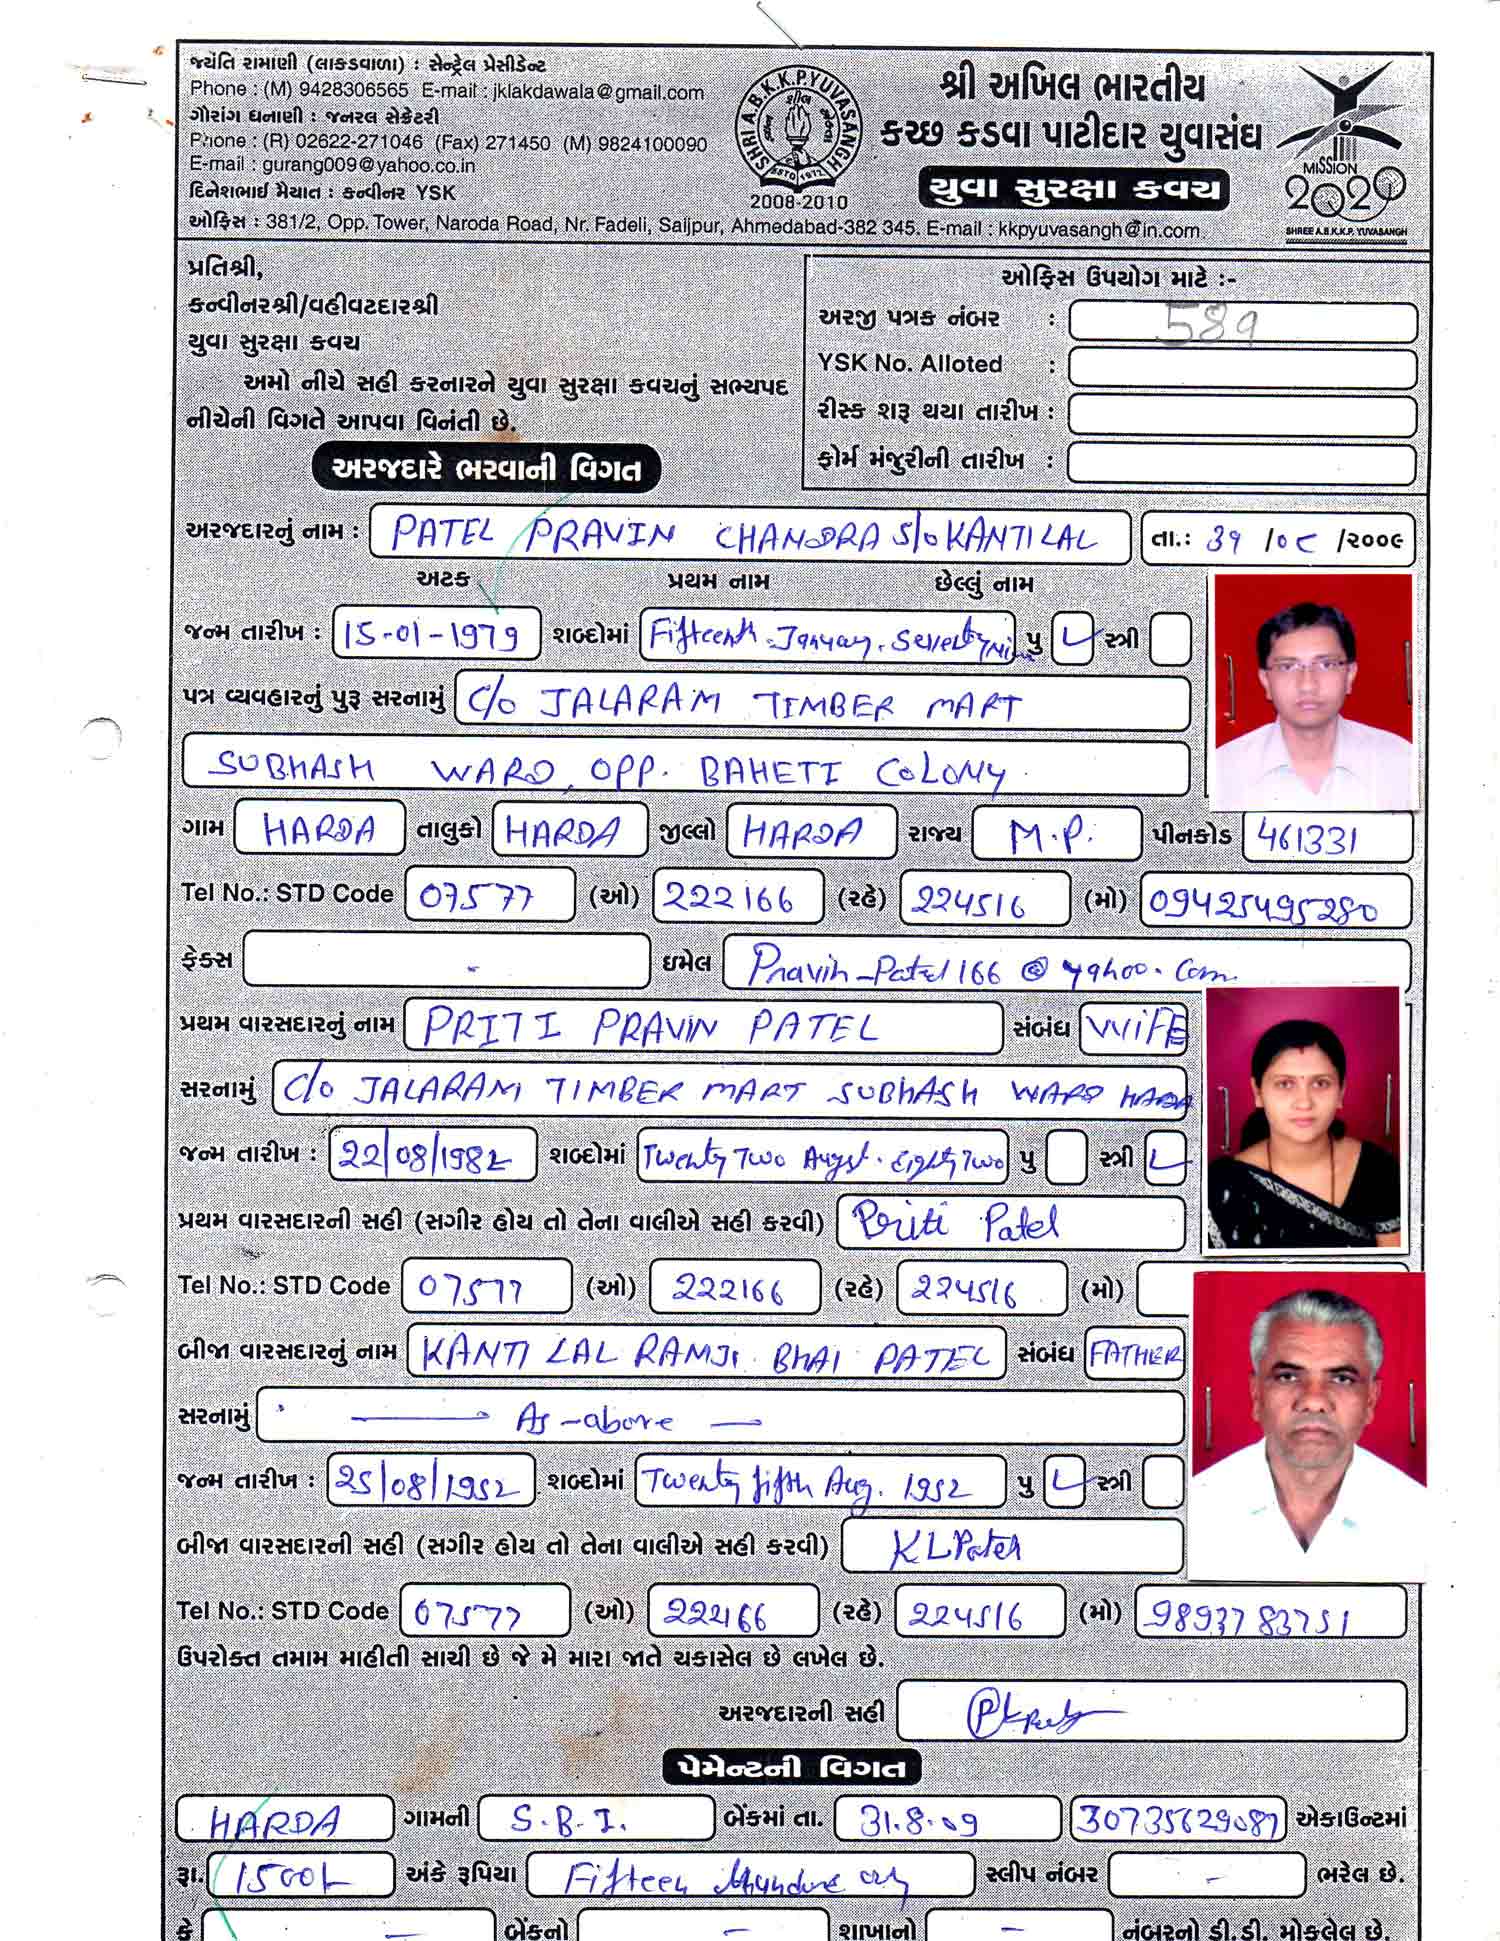 જ્યંતિ રામાણી (લાકડાવાળા) : સેન્ટ્રેલ પ્રેસીડેન્ટ
Phone : (M) 9428306565 E-mail : jklakdawala@gmail.com
ગૌરાંગ ધનાણી : જનરલ સેક્રેટરી
Phone : (R) 02622-271046 (Fax) 271450 (M) 9824100090
E-mail : gurang009@yahoo.co.in
દિનેશભાઈ મેચાત : કન્વીનર YSK
SHRI A.B.K.K.P.YUVASANGH
ESTD 1972
2008-2010
શ્રી અખિલ ભારતીય
કચ્છ કડવા પાટીદાર યુવાસંઘ
યુવા સુરક્ષા કવચ
MISSION
2020
SHREE A.B.K.K.P. YUVASANGH
ઓફિસ : 381/2, Opp. Tower, Naroda Road, Nr. Fadeli, Saijpur, Ahmedabad-382 345. E-mail : kkpyuvasangh@in.com.
પ્રતિશ્રી,
કન્વીનરશ્રી/વહીવટદારશ્રી
યુવા સુરક્ષા કવચ
અમો નીચે સહી કરનારને યુવા સુરક્ષા કવચનું સભ્યપદ
નીચેની વિગતે આપવા વિનંતી છે.
ઓફિસ ઉપયોગ માટે :-
અરજી પત્રક નંબર : 589
YSK No. Alloted :
રીસ્ક શરૂ થયા તારીખ :
ફોર્મ મંજુરીની તારીખ :
અરજદારે ભરવાની વિગત
અરજદારનું નામ : PATEL PRAVIN CHANDRA S/o KANTILAL તા.: 31 /૦૮ /૨૦૦૯
અટક પ્રથમ નામ છેલ્લું નામ
જન્મ તારીખ : 15-01-1979 શબ્દોમાં Fifteenth January. Seventy Nine પુ ✓ સ્ત્રી
પત્ર વ્યવહારનું પુરૂ સરનામું C/o JALARAM TIMBER MART
SUBHASH WARD, OPP. BAHETI COLONY
ગામ HARDA તાલુકો HARDA જીલ્લો HARDA રાજ્ય M.P. પીનકોડ 461331
Tel No.: STD Code 07577 (ઓ) 222166 (રહે) 224516 (મો) 09425495280
ફેક્સ - ઇમેલ Pravin_Patel166@yahoo.com
પ્રથમ વારસદારનું નામ PRITI PRAVIN PATEL સંબંધ WIFE
સરનામું C/o JALARAM TIMBER MART SUBHASH WARD HARDA
જન્મ તારીખ : 22/08/1982 શબ્દોમાં Twenty Two Augst. Eighty Two પુ સ્ત્રી ✓
પ્રથમ વારસદારની સહી (સગીર હોય તો તેના વાલીએ સહી કરવી) Priti Patel
Tel No.: STD Code 07577 (ઓ) 222166 (રહે) 224516 (મો)
બીજા વારસદારનું નામ KANTI LAL RAMJI BHAI PATEL સંબંધ FATHER
સરનામું — As-above —
જન્મ તારીખ : 25/08/1952 શબ્દોમાં Twenty fifth Aug. 1952 પુ ✓ સ્ત્રી
બીજા વારસદારની સહી (સગીર હોય તો તેના વાલીએ સહી કરવી) KLPatel
Tel No.: STD Code 07577 (ઓ) 222166 (રહે) 224516 (મો) 9893783751
ઉપરોક્ત તમામ માહીતી સાચી છે જે મે મારા જાતે ચકાસેલ છે લખેલ છે.
અરજદારની સહી
પેમેન્ટની વિગત
HARDA ગામની S.B.I. બેંકમાં તા. 31.8.09 30735629087 એકાઉન્ટમાં
રૂા. 1500/- અંકે રૂપિયા Fifteen Hundred only સ્લીપ નંબર - ભરેલ છે.
કે - બેંકનો - શાખાનો - નંબરનો ડી.ડી. મોકલેલ છે.